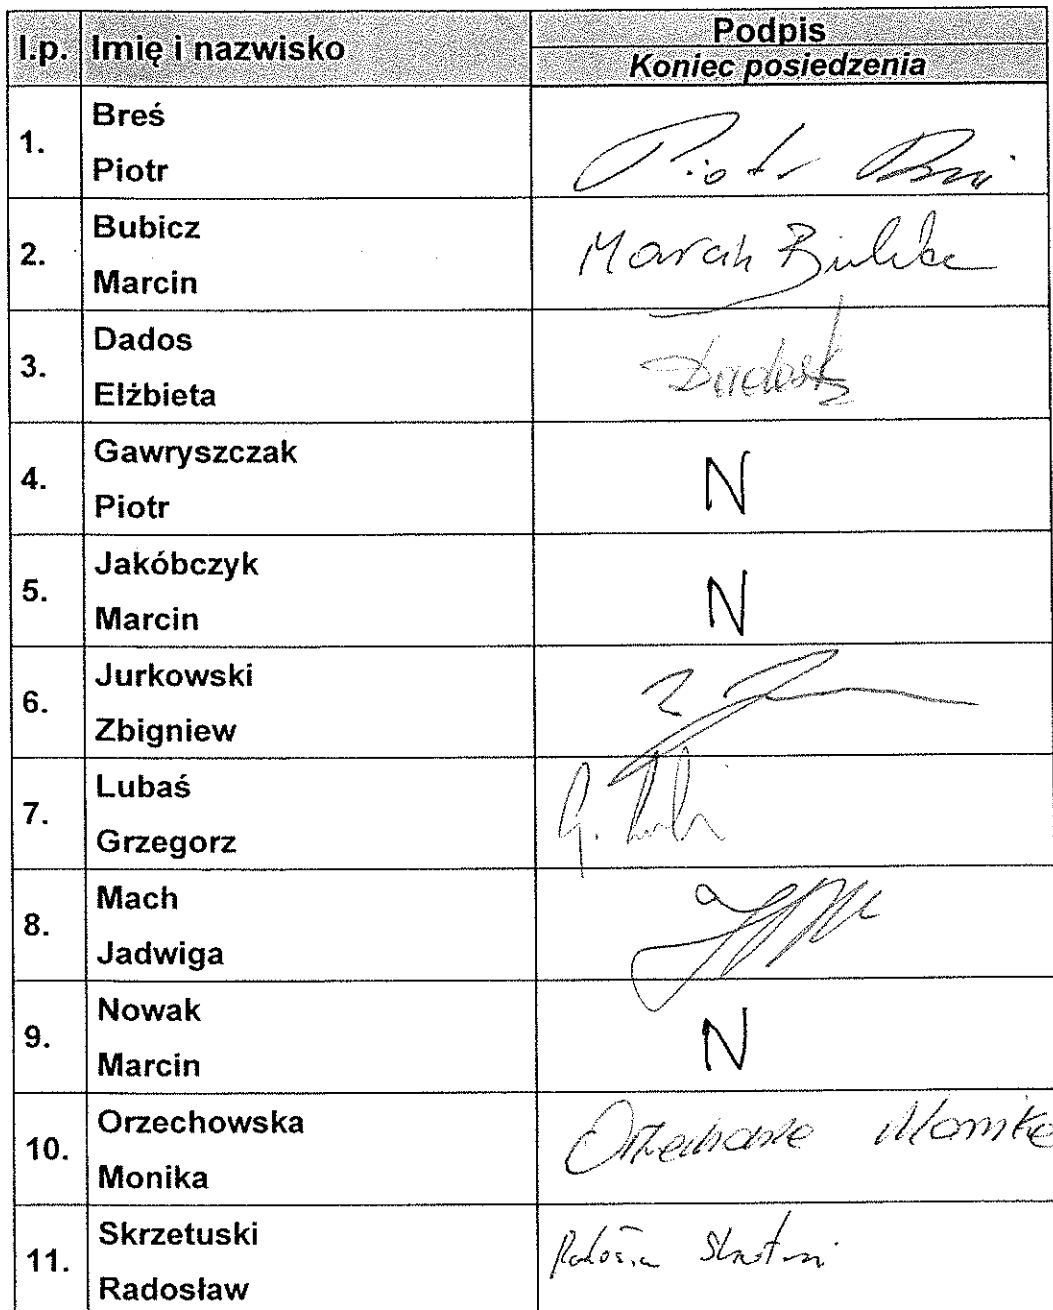 l.p. Imię i nazwisko Podpis
Koniec posiedzenia
1. Breś
Piotr
Piotr
2. Bubicz
Marcin
Marcin
3. Dados
Elżbieta
4. Gawryszczak
Piotr
N
5. Jakóbczyk
Marcin
N
6. Jurkowski
Zbigniew
7. Lubaś
Grzegorz
G.
8. Mach
Jadwiga
9. Nowak
Marcin
N
10. Orzechowska
Monika
Orzechowska Monika
11. Skrzetuski
Radosław